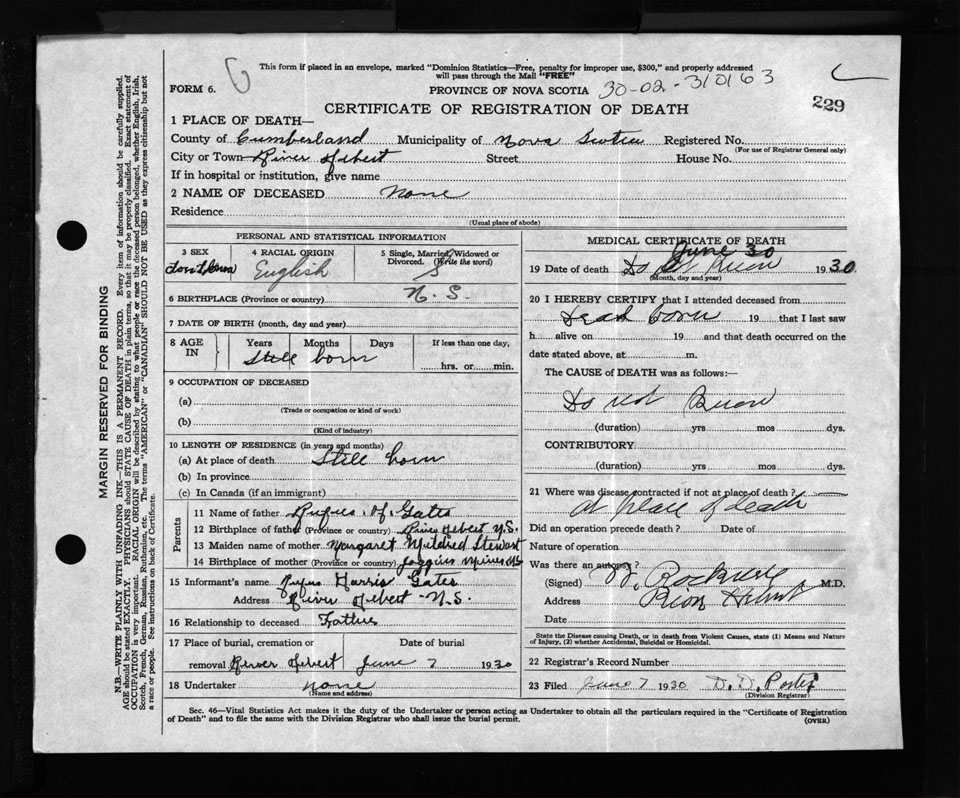 This form if placed in an envelope, marked "Dominion Statistics—Free, penalty for improper use, $300," and properly addressed
will pass through the Mail "FREE"
FORM 6. PROVINCE OF NOVA SCOTIA 30-02-310163
229
CERTIFICATE OF REGISTRATION OF DEATH
1 PLACE OF DEATH—
County of Cumberland Municipality of Nova Scotia Registered No.
(For use of Registrar General only)
City or Town River Hebert Street House No.
If in hospital or institution, give name
2 NAME OF DECEASED None
Residence
(Usual place of abode)
PERSONAL AND STATISTICAL INFORMATION
3 SEX 4 RACIAL ORIGIN 5 Single, Married, Widowed or
Divorced. (Write the word)
English S
6 BIRTHPLACE (Province or country) N. S.
7 DATE OF BIRTH (month, day and year)
8 AGE IN Years Months Days If less than one day,
Still born hrs. or min.
9 OCCUPATION OF DECEASED
(a)
(Trade or occupation or kind of work)
(b)
(Kind of industry)
10 LENGTH OF RESIDENCE (in years and months)
(a) At place of death Still born
(b) In province
(c) In Canada (if an immigrant)
Parents
11 Name of father Rufus H. Gates
12 Birthplace of father (Province or country) River Hebert N.S.
13 Maiden name of mother Margaret Mildred Stewart
14 Birthplace of mother (Province or country) Joggins Mines N.S.
15 Informant's name Rufus Harris Gates
Address River Hebert N.S.
16 Relationship to deceased Father
17 Place of burial, cremation or Date of burial
removal River Hebert June 7 1930
18 Undertaker none
(Name and address)
MEDICAL CERTIFICATE OF DEATH
June 30
19 Date of death Do not Know 1930
(Month, day and year)
20 I HEREBY CERTIFY that I attended deceased from
Dead born 19 that I last saw
h alive on 19 and that death occurred on the
date stated above, at m.
The CAUSE of DEATH was as follows:—
Do not Know
(duration) yrs mos dys.
CONTRIBUTORY
(duration) yrs mos dys.
21 Where was disease contracted if not at place of death?
At place of death
Did an operation precede death? Date of
Nature of operation
Was there an autopsy?
(Signed) W. Rockwell M.D.
Address River Hebert
Date
State the Disease causing Death, or in death from Violent Causes, state (1) Means and Nature
of Injury, (2) whether Accidental, Suicidal or Homicidal.
22 Registrar's Record Number
23 Filed June 7 1930 D. D. Porter
(Division Registrar)
Sec. 46—Vital Statistics Act makes it the duty of the Undertaker or person acting as Undertaker to obtain all the particulars required in the "Certificate of Registration
of Death" and to file the same with the Division Registrar who shall issue the burial permit.
(OVER)
MARGIN RESERVED FOR BINDING
N.B.—WRITE PLAINLY WITH UNFADING INK—THIS IS A PERMANENT RECORD. Every item of information should be carefully supplied.
AGE should be stated EXACTLY. PHYSICIANS should STATE CAUSE OF DEATH in plain terms, so that it may be properly classified. Exact statement of
OCCUPATION is very important. RACIAL ORIGIN will be described by stating to what people or race the deceased person belonged, whether English, Irish,
Scotch, French, German, Russian, Ruthenian, etc. The terms "AMERICAN" or "CANADIAN" SHOULD NOT BE USED as they express citizenship but not
a race or people. See instructions on back of Certificate.